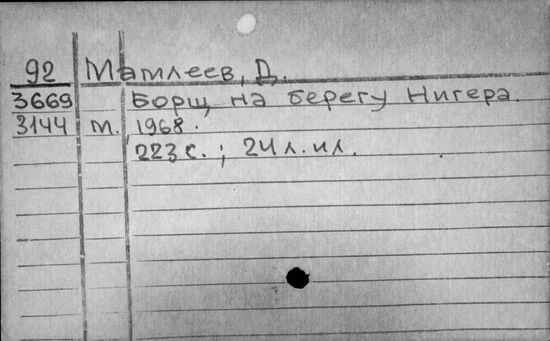 92 Матлеев, Д.
3669 Борщ на берегу Нигера.
3144 М. 1968.
223 с. ; 24 л. ил.